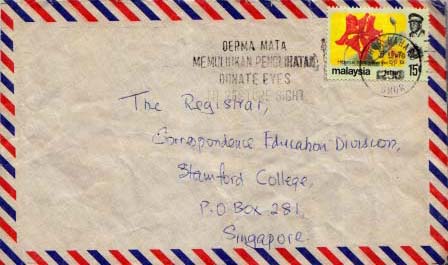 DERMA MATA
MEMULIHKAN PENGLIHATAN
DONATE EYES
TO RESTORE SIGHT
malaysia
15¢
The Registrar,
Correspondence Education Division,
Stamford College,
P.O Box 281,
Singapore.